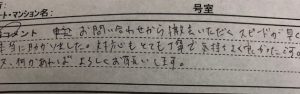 ート・マンション名 号室
コメント 申込 お問い合わせから 撤去いただく スピードが 早く
本当に助かりました。対応もとても丁寧で 気持ちよく でした。
又、何かあれば よろしくお願いします。